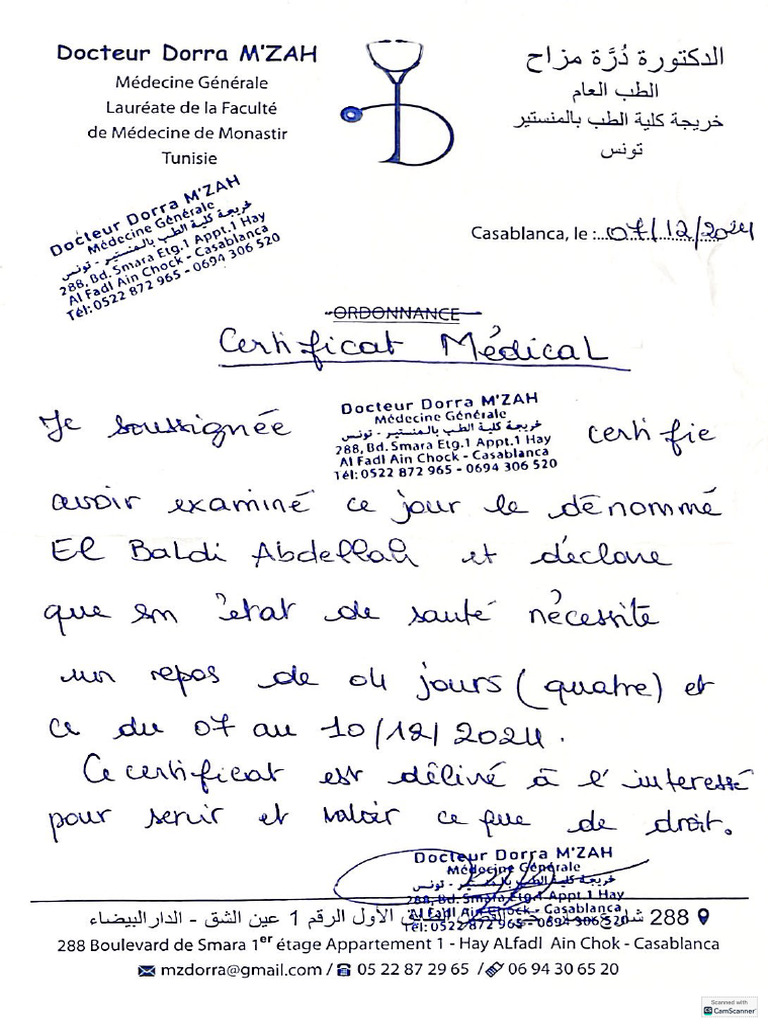 Docteur Dorra M'ZAH
Médecine Générale
Lauréate de la Faculté
de Médecine de Monastir
Tunisie
الدكتورة دُرَّة مزاح
الطب العام
خريجة كلية الطب بالمنستير
تونس
Docteur Dorra M'ZAH
Médecine Générale
خريجة كلية الطب بالمنستير - تونس
288, Bd. Smara Etg.1 Appt.1 Hay
Al Fadl Ain Chock - Casablanca
Tél: 0522 872 965 - 0694 306 520
Casablanca, le : 07/12/2024
ORDONNANCE
Certificat Médical
Je soussignée
Docteur Dorra M'ZAH
Médecine Générale
خريجة كلية الطب بالمنستير - تونس
288, Bd. Smara Etg.1 Appt.1 Hay
Al Fadl Ain Chock - Casablanca
Tél: 0522 872 965 - 0694 306 520
certifie
avoir examiné ce jour le dénommé
El Baldi Abdellah et déclare
que son état de santé nécessite
un repos de 04 jours (quatre) et
ce du 07 au 10/12/2024.
Ce certificat est délivré à l'interessé
pour servir et valoir ce que de droit.
Docteur Dorra M'ZAH
Médecine Générale
خريجة كلية الطب بالمنستير - تونس
288, Bd. Smara Etg.1 Appt.1 Hay
Al Fadl Ain Chock - Casablanca
Tél: 0522 872 965 - 0694 306 520
288 شارع الطابق الأول الرقم 1 عين الشق - الدار البيضاء
288 Boulevard de Smara 1er étage Appartement 1 - Hay ALfadl Ain Chok - Casablanca
mzdorra@gmail.com / 05 22 87 29 65 / 06 94 30 65 20
Scanned with
CS CamScanner